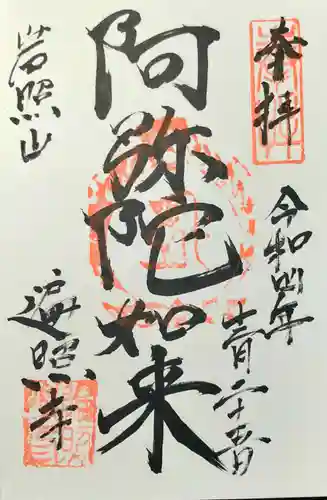 奉拝
令和四年
十一月二十五日
阿弥陀如来
普照山
遍照寺